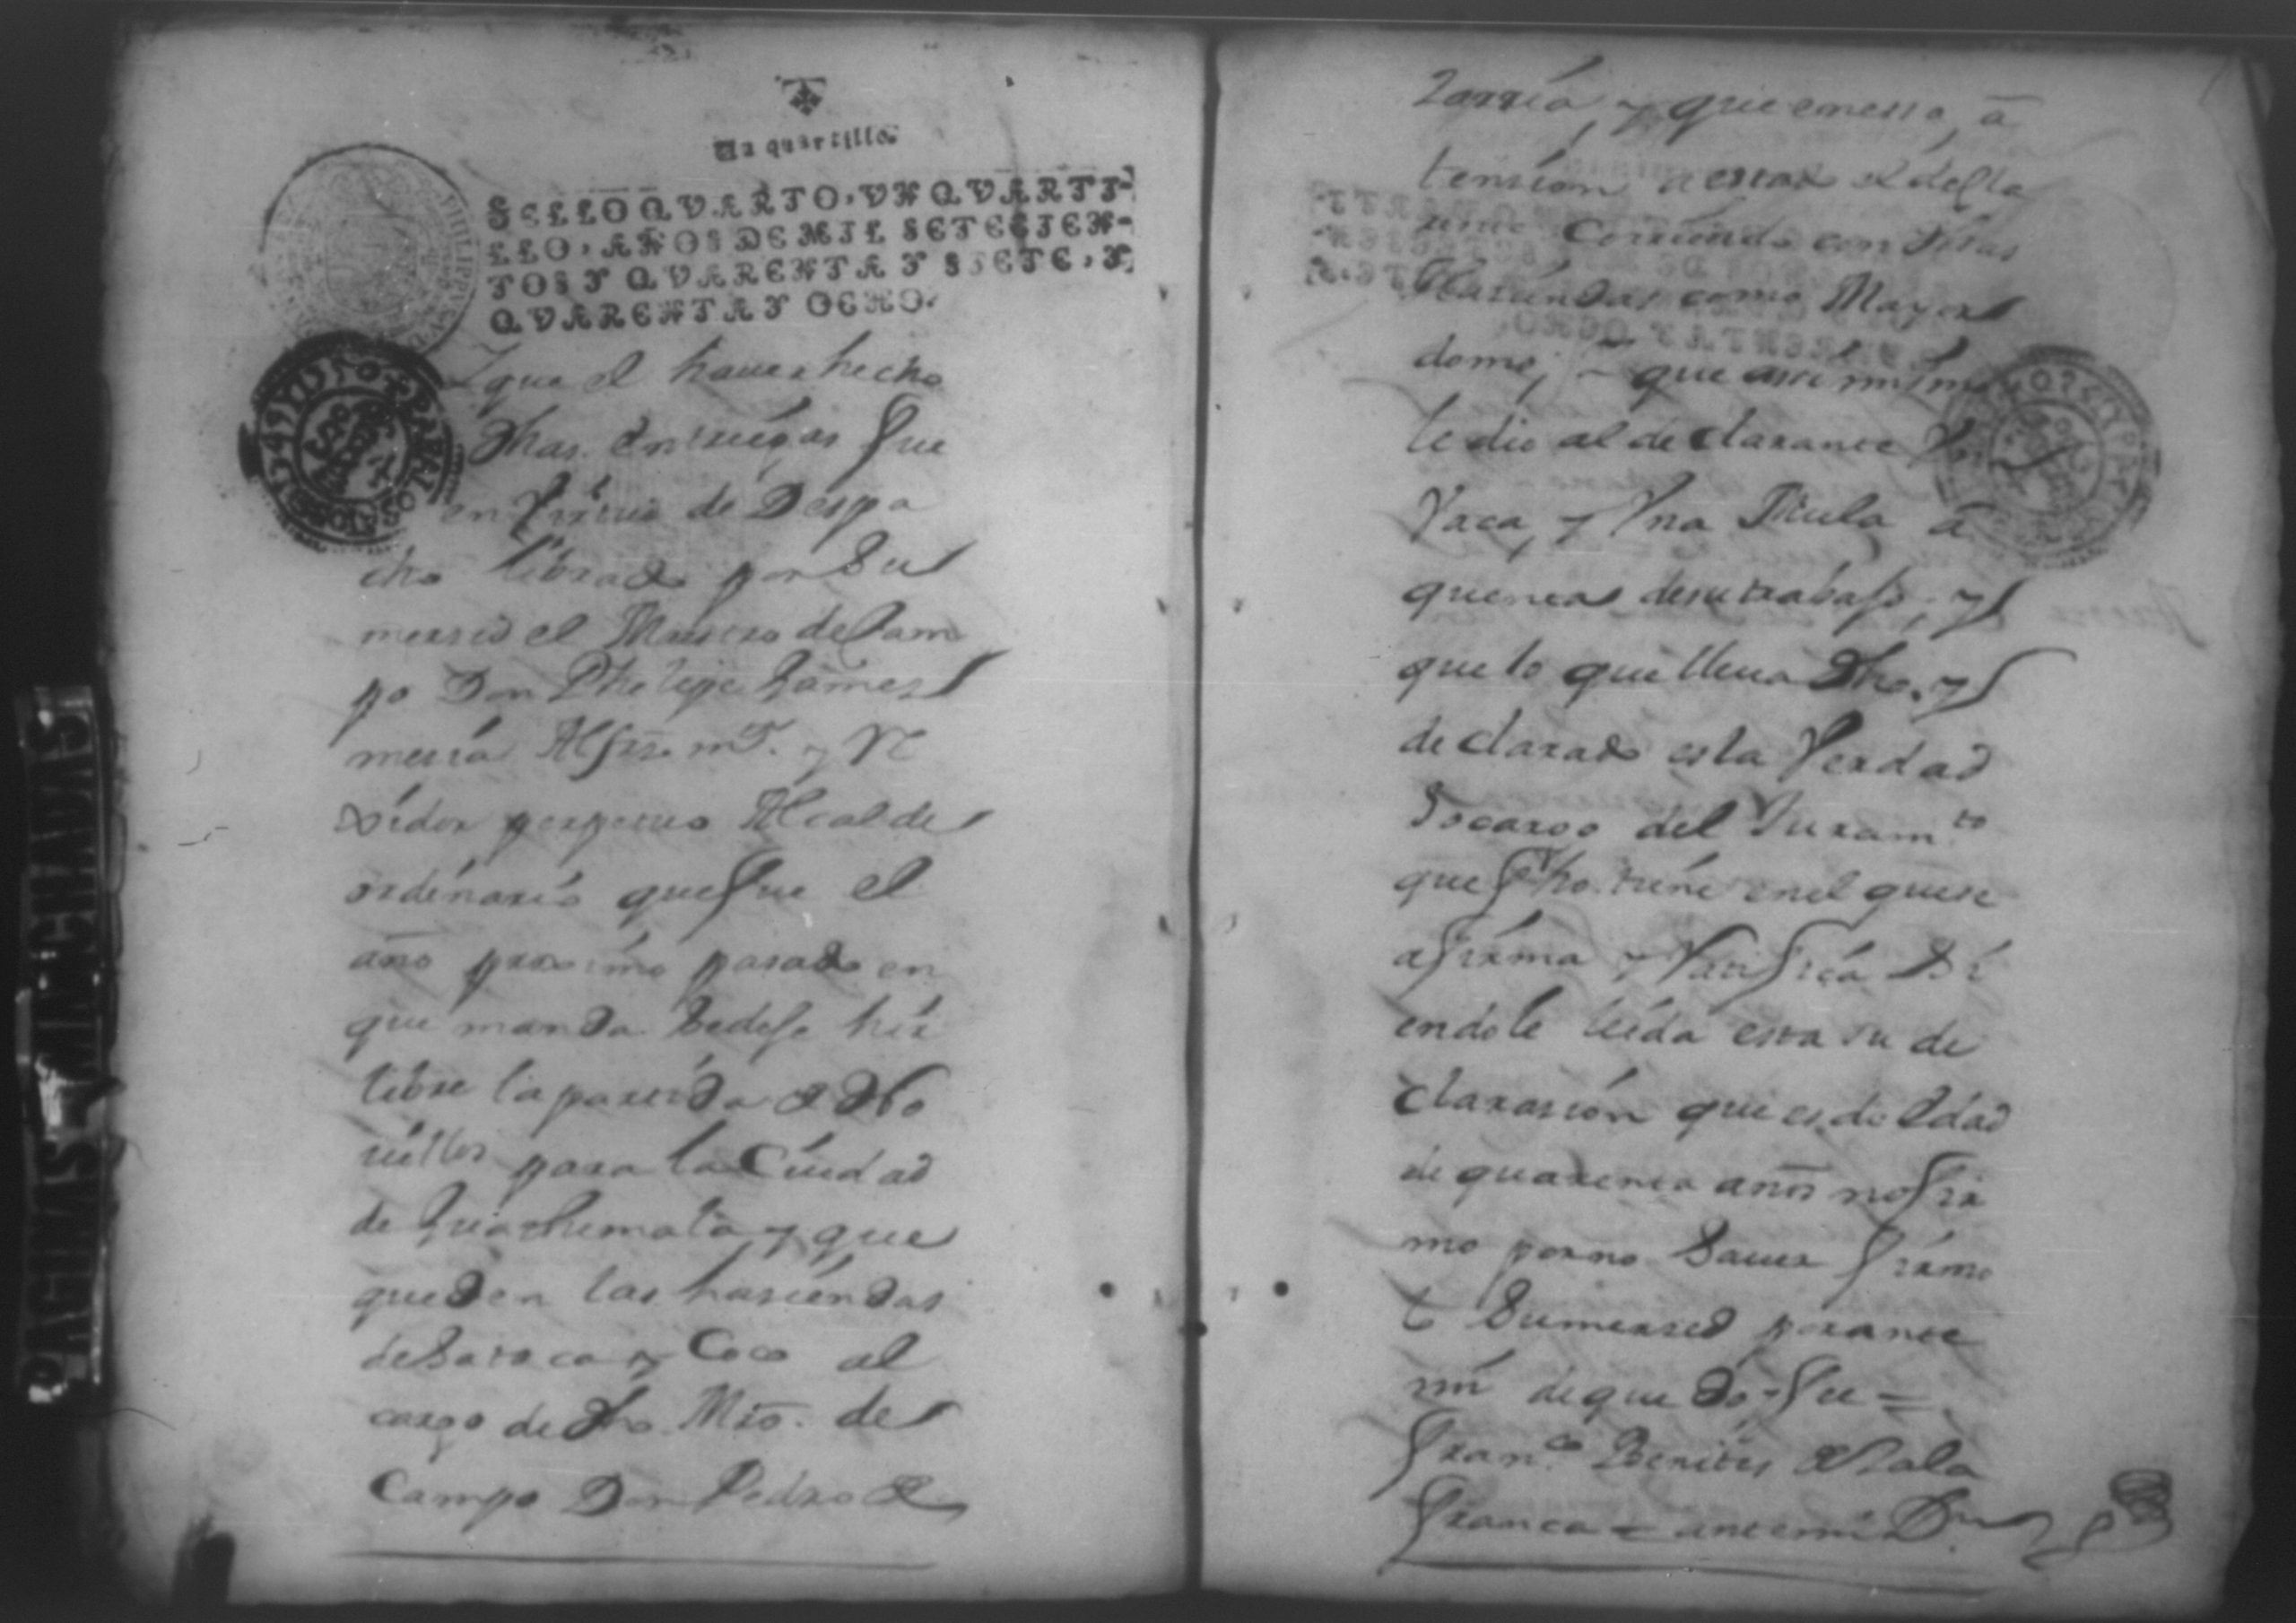 Un quartillo.
SELLO QVARTO, VN QVARTI-
LLO, AÑOS DE MIL SETECIEN-
TOS Y QVARENTA Y SIETE, Y
QVARENTA Y OCHO.
PHILIPPVS V D
Y que el hauer hecho
dhas. entregas fue
en Virtud de Despa
cho librado por Su
mersed el Maestro de Cam
po Don Phelipe Games
mesia Alfrs. mr. y Re
xidor perpetuo Alcalde
ordinario que fue el
año proximo pasado en
que manda Se dese hir
libre la partida de No
uillos para la Ciudad
de Guathemala y que
queden las hasiendas
de y Coco al
cargo de dho. Mro. de
Campo Don Pedro de
Zarria, y que en esta, a
tension a estar el defla
Corriendo con dhas
Hasiendas como Mayor
domo; y que assi mismo
le dio al declarante Vn
Vaca, y Vna Mula a
quenta de su trabajo; y
que lo que lleua dho. y
declarado es la Verdad
Socargo del Juramto.
que fho. tiene en el que se
afirma y Ratifica Si
endole leida esta su de
clarasion que es de edad
de quarenta años no fir
mo por no Sauer firmo
lo Su mersed por ante
mi de que doi fee =
Franco. Benites de Sala
franca = ante mi D.
PAGINAS MANCHADAS